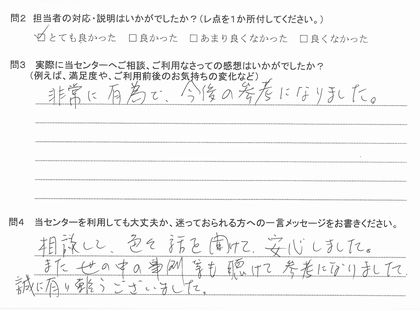 問2 担当者の対応・説明はいかがでしたか？(レ点を1か所付してください。)
☑とても良かった □良かった □あまり良くなかった □良くなかった
問3 実際に当センターへご相談、ご利用なさっての感想はいかがでしたか？
(例えば、満足度や、ご利用前後のお気持ちの変化など)
非常に有為で、今後の参考になりました。
問4 当センターを利用しても大丈夫か、迷っておられる方への一言メッセージをお書きください。
相談して、色々話を聞けて、安心しました。
また世の中の事例等も聴けて参考になりました
誠に有り難うございました。